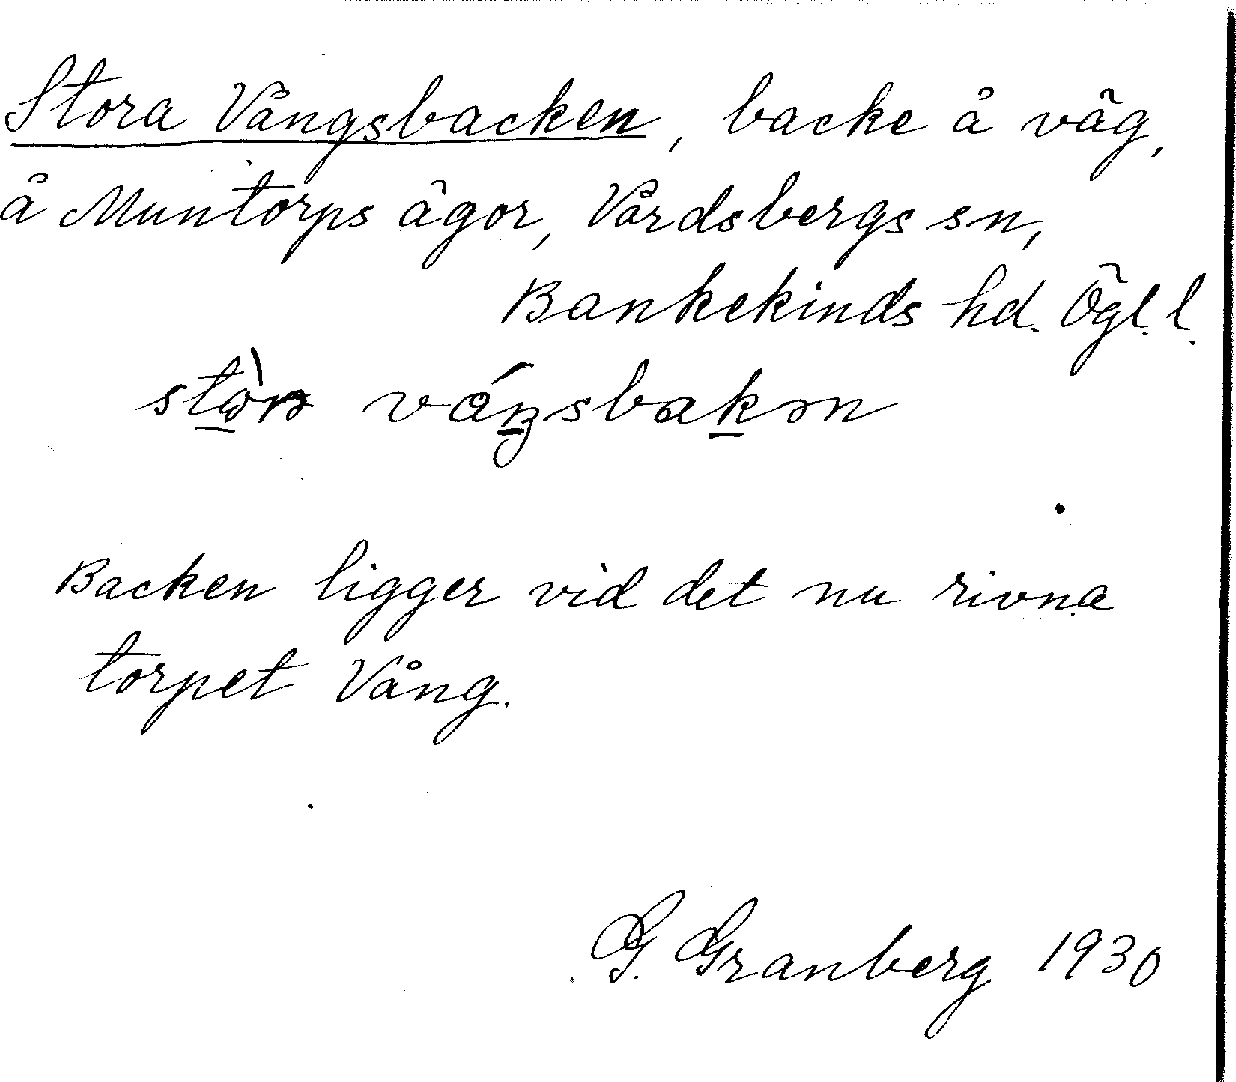 Stora Vångsbacken, backe å väg,
å Muntorps ägor, Vårdsbergs sn,
Bankekinds hd. Ögl. l.
Backen ligger vid det nu rivna
torpet Vång.
G. Granberg 1930